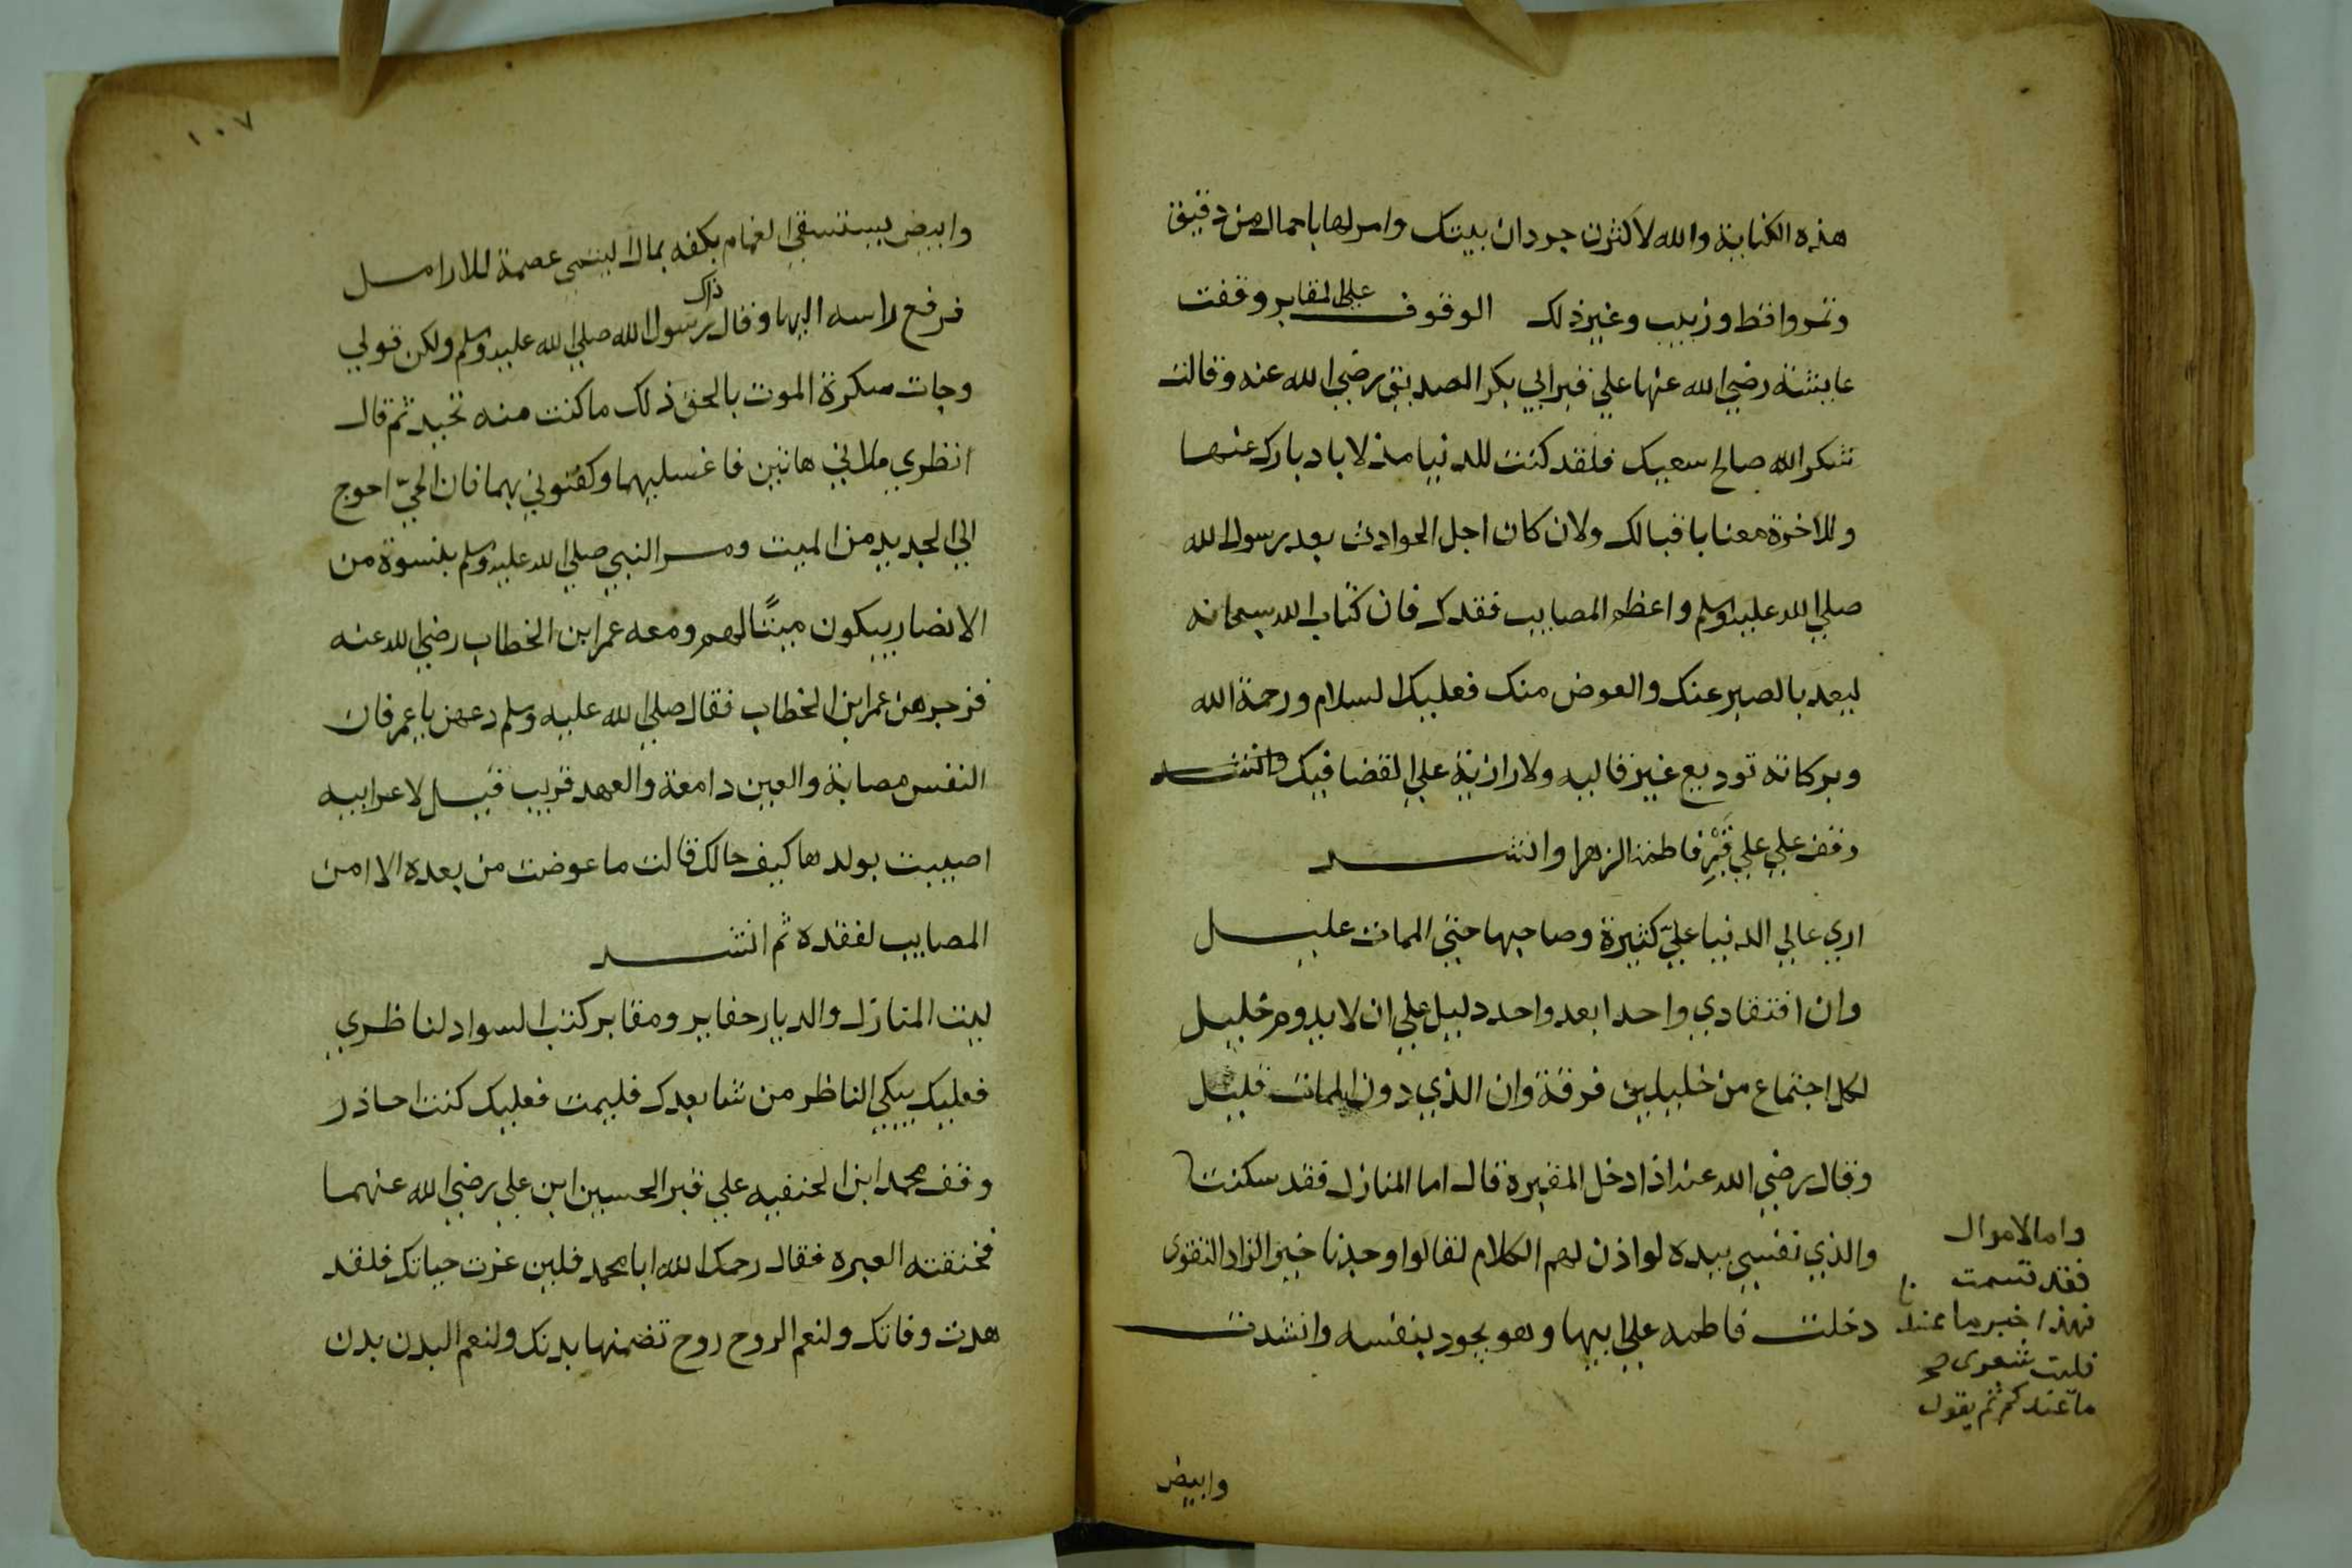 هذه الكناية والله لاكثرن جردان بيتك وامر لها باحمال من دقيق
وتمر واقط وزبيب وغير ذلك الوقوف على المقابر وقفت
عايشة رضي الله عنها علي قبر ابي بكر الصديق رضي الله عنه وقالت
شكر الله صالح سعيك فلقد كنت للدنيا مذلا بادبارك عنها
وللاخرة معنا باقبالك ولان كان اجل الحوادث بعد رسول الله
صلي الله عليه وسلم واعظم المصايب فقدك فان كتاب الله سبحانه
ليعد بالصبر عنك والعوض منك فعليك السلام ورحمة الله
وبركاته توديع غير قاليه ولا رازية علي القضا فيك وانشد
وقف علي علي قبر فاطمة الزهرا وانشد
اري عالي الدنيا عليّ كثيرة وصاحبها حتي الممات عليل
وان افتقادي واحدا بعد واحد دليل علي ان لا يدوم خليل
لكل اجتماع من خليلين فرقة وان الذي دون الممات قليل
وقال رضي الله عنه اذا دخل المقبرة قال اما المنازل فقد سكنت
والذي نفسي بيده لو اذن لهم الكلام لقالوا وجدنا خير الزاد التقوى
دخلت فاطمه علي ابيها وهو يجود بنفسه وانشدت
واما الاموال
فقد قسمت
فهذا خبر ما عندنا
فليت شعري
ما عندكم ثم يقول
وابيض
١٠٧
وابيض يستسقي الغمام بكفه بمال اليتمى عصمة للارامل
فرفع راسه اليها وقال ذاك رسول الله صلي الله عليه وسلم ولكن قولي
وجات سكرة الموت بالحق ذلك ما كنت منه تحيد ثم قال
انظري ملاتي هاتين فاغسليهما وكفنوني بهما فان الحيّ احوج
الي الجديد من الميت ومر النبي صلي الله عليه وسلم بنسوة من
الانصار يبكون ميتًا لهم ومعه عمر ابن الخطاب رضي الله عنه
فزجرهن عمر ابن الخطاب فقال صلي الله عليه وسلم دعهن يا عمر فان
النفس مصابة والعين دامعة والعهد قريب قيل لاعرابيه
اصيبت بولدها كيف حالك قالت ما عوضت من بعده الا امن
المصايب لفقده ثم انشد
ليت المنازل والديار حفاير ومقابر كنت السواد لناظري
فعليك يبكي الناظر من شا بعدك فليمت فعليك كنت احاذر
وقف محمد ابن الحنفيه علي قبر الحسين ابن علي رضي الله عنهما
فخنقته العبره فقال رحمك الله ابا محمد فلين عزت حياتك فلقد
هدت وفاتك ولنعم الروح روح تضمنها بدنك ولنعم البدن بدن